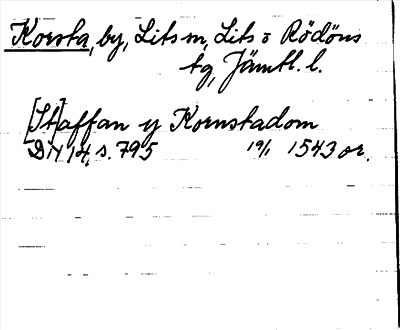 Korsta, by, Lits sn, Lits o Rödöns
tg, Jämtl. l.
[St]affan y Kornstadom
DN 14, s. 795 19/1 1543 or.